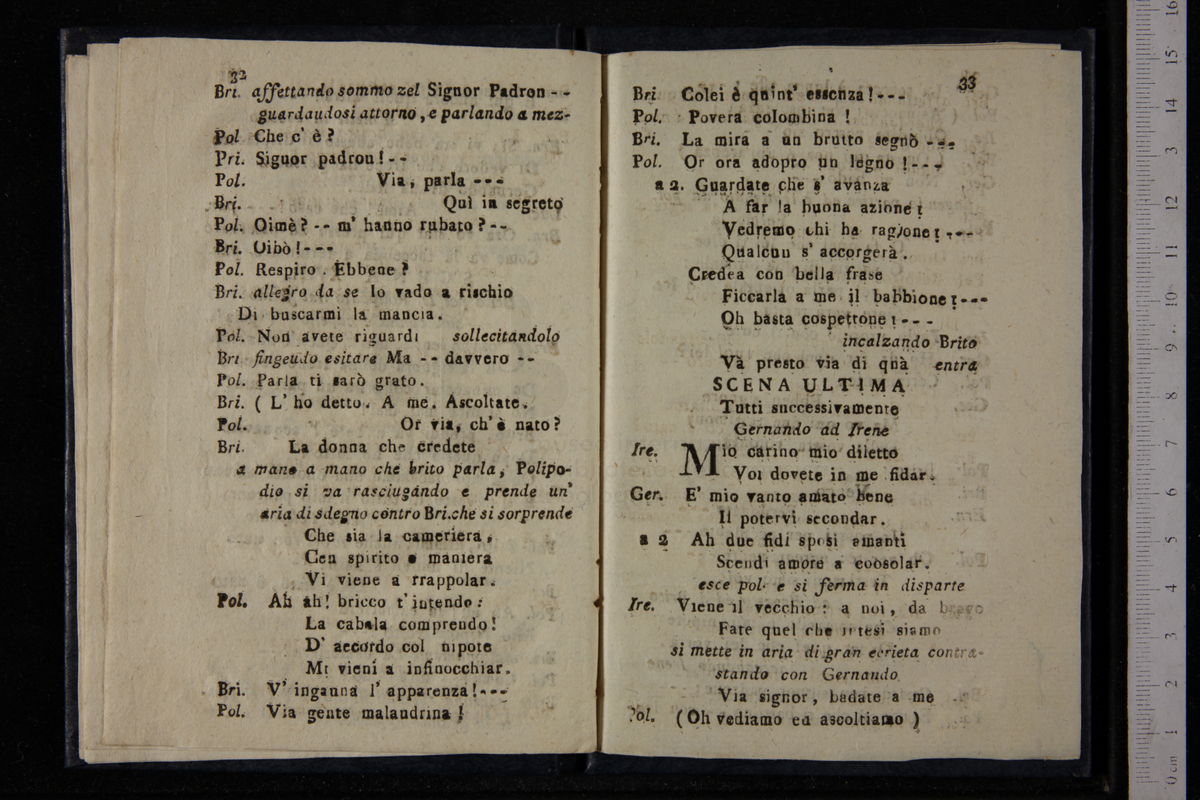 32
Bri. affettando sommo zel Signor Padron - -
guardaudosi attorno, e parlando a mez-
Pol Che c' è ?
Pri. Siguor padron! - -
Pol. Via, parla - - -
Bri. Quì in segreto
Pol. Oimè ? - - m' hanno rubato ? - -
Bri. Uibò ! - - -
Pol. Respiro . Ebbene ?
Bri. allegro da se Io vado a rischio
Di buscarmi la mancia .
Pol. Non avete riguardi sollecitandolo
Bri fingeudo esitare Ma - - davvero - -
Pol. Parla ti sarò grato .
Bri. ( L' ho detto . A me . Ascoltate .
Pol. Or via, ch' è nato ?
Bri. La donna che credete
a mano a mano che brito parla, Polipo-
dio si va rasciugándo e prende un'
aria di sdegno contro Bri.che si sorprende
Che sia la cameriera ,
Cen spirito e maniera
Vi viene a rrappolar .
Pol. Ah ah! bricco t' intendo :
La cabala comprendo !
D' accordo col nipote
Mi vieni a infinocchiar .
Bri. V' inganna l' apparenza ! - - -
Pol. Via gente malandrina !
33
Bri Colei è quint' essenza ! - - -
Pol. Povera colombina !
Bri. La mira a un brutto segnò - - -
Pol. Or ora adopro un legno ! - - -
a 2. Guardate che s' avanza
A far la buona azione !
Vedremo chi ha ragione ! - - -
Qualcuu s' accorgerà .
Credea con bella frase
Ficcarla a me il babbione ! - - -
Oh basta cospettone ! - - -
incalzando Brito
Và presto via di quà entra
SCENA ULTIMA
Tutti successivamente
Gernando ad Irene
Ire. Mio carino mio diletto
Voi dovete in me fidar .
Ger. E' mio vanto amato bene
Il potervi secondar .
a 2 Ah due fidi sposi amanti
Scendi amore a coosolar .
esce pol. e si ferma in disparte
Ire. Viene il vecchio : a noi , da bravo
Fate quel che intesi siamo
si mette in aria di gran ecrieta contra-
stando con Gernaudo
Via signor , badate a me
Pol. (Oh vediamo ed ascoltiamo )